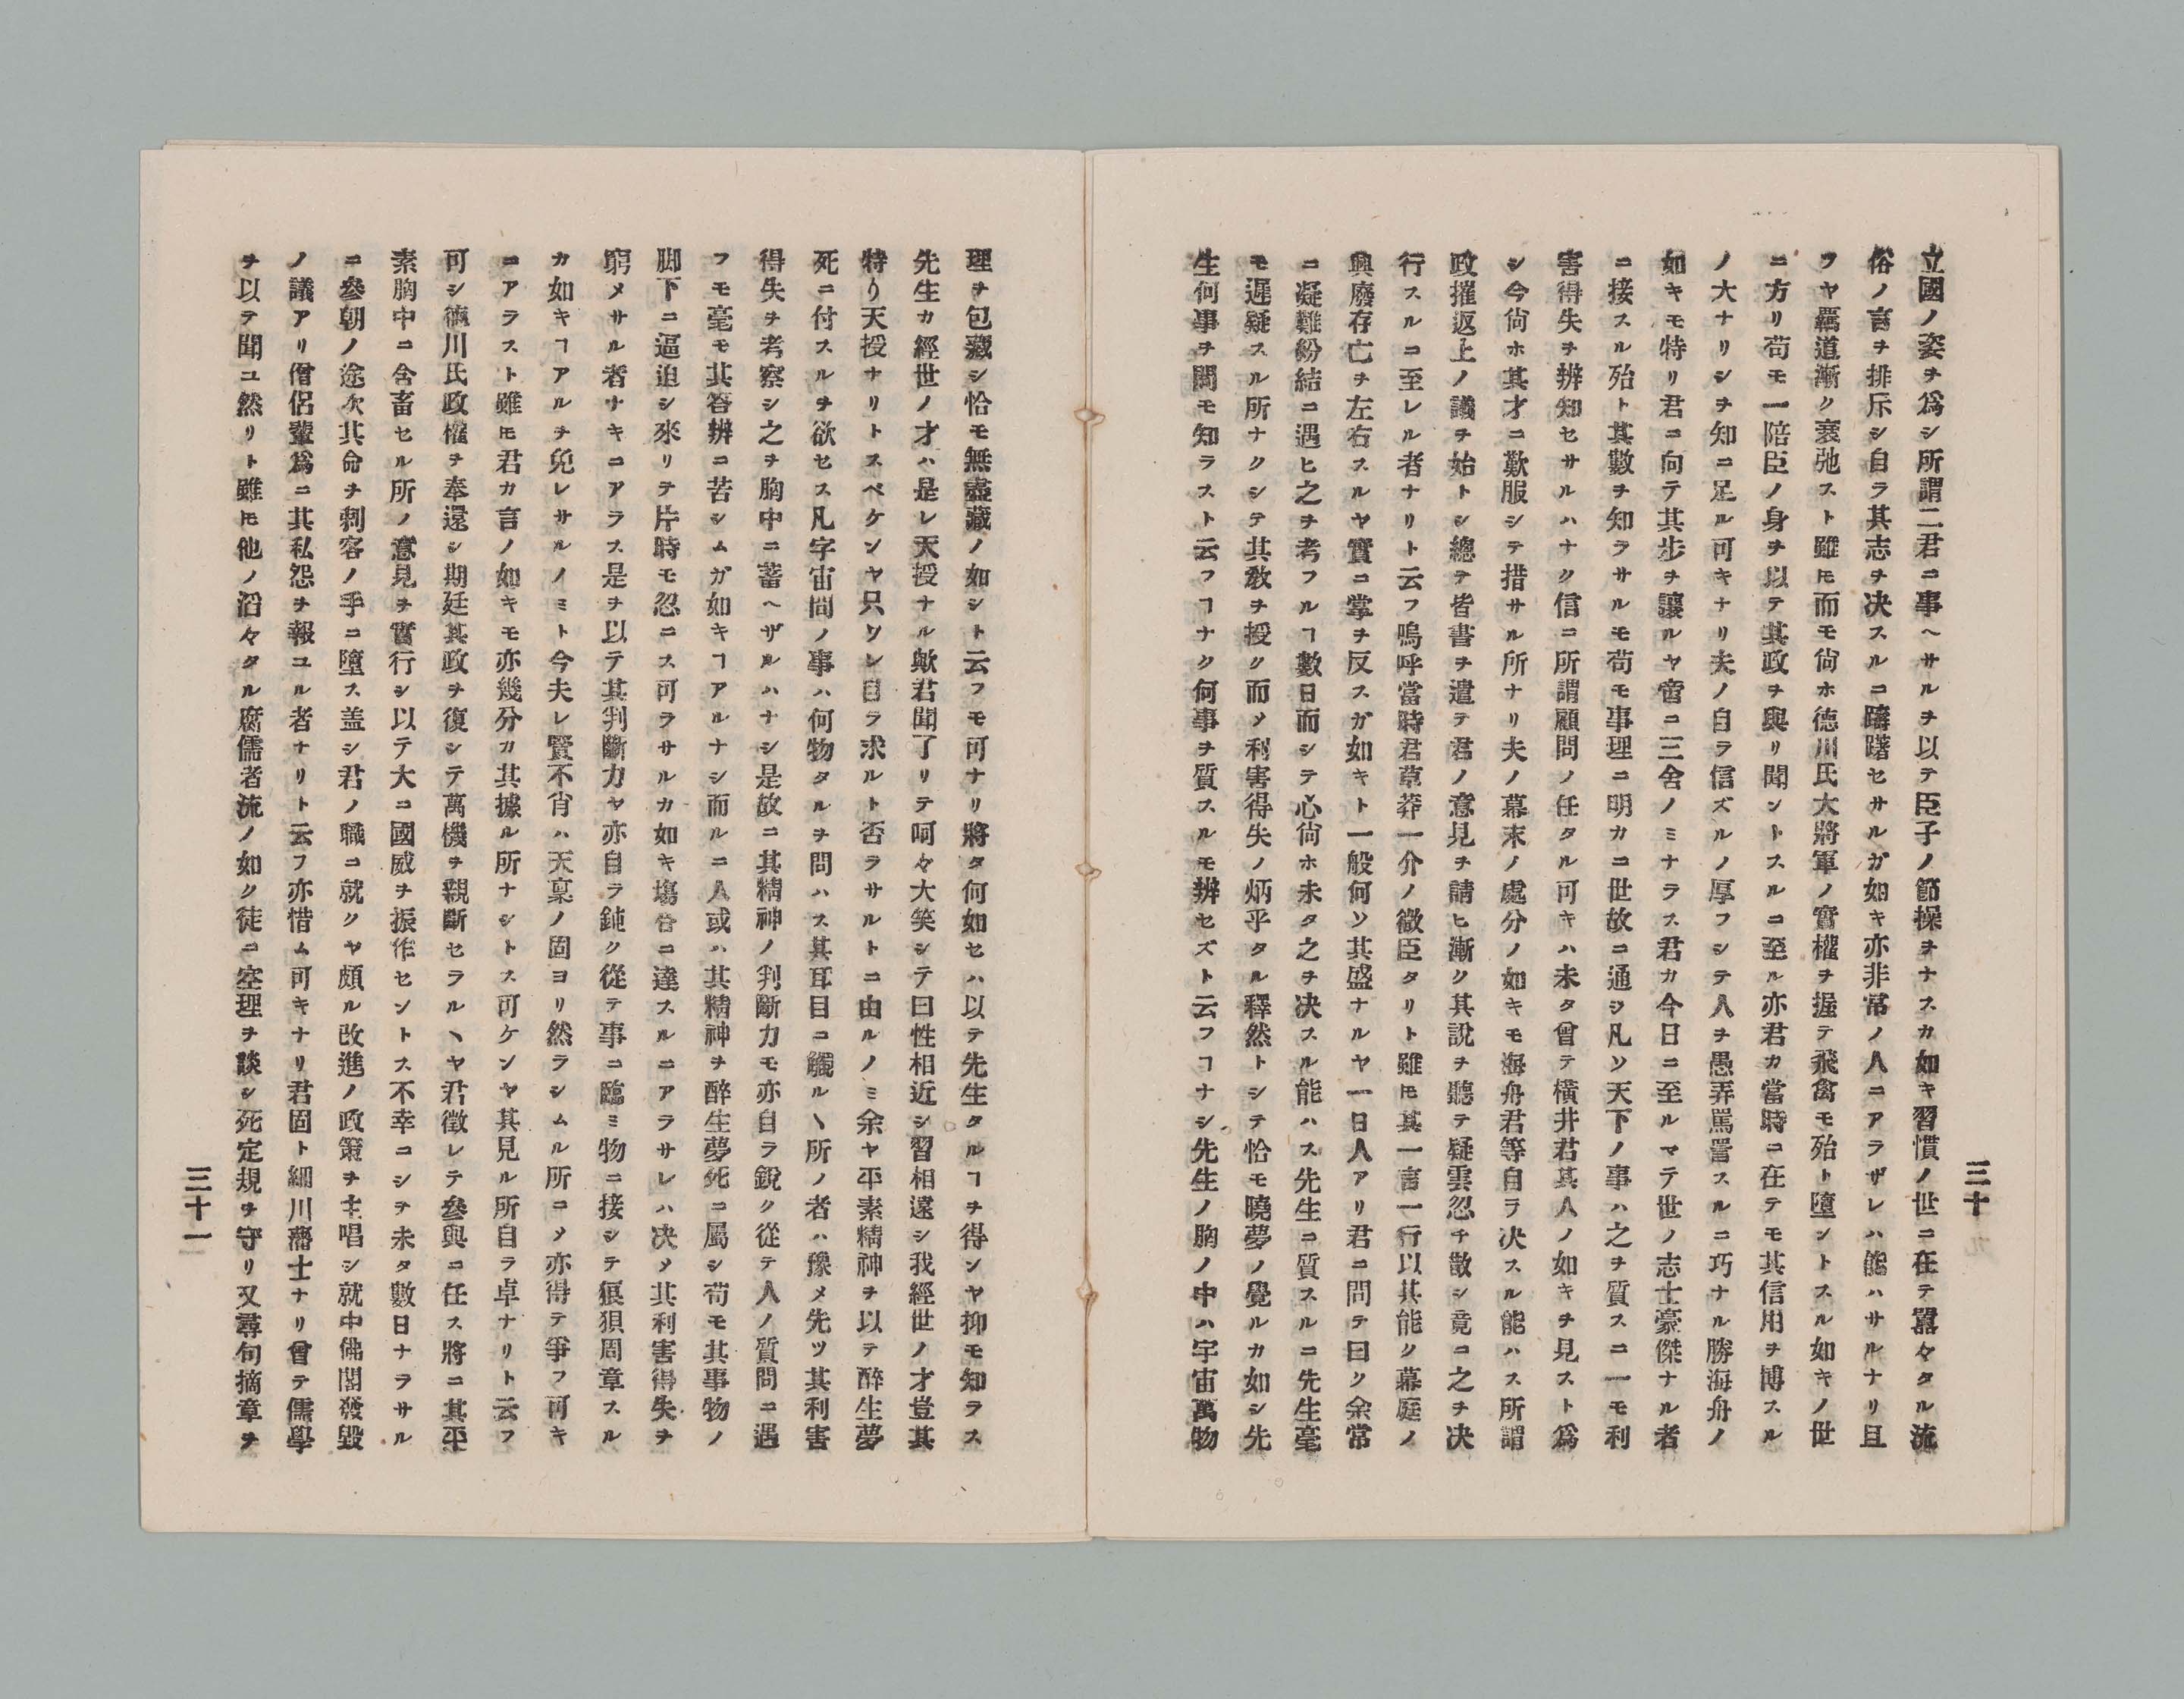 三十
立國ノ姿ヲ爲シ所謂二君ニ事ヘサルヲ以テ臣子ノ節操ヲナスカ如キ習慣ノ世ニ在テ囂々タル流
俗ノ言ヲ排斥シ自ラ其志ヲ决スルニ躊躇セサルガ如キ亦非常ノ人ニアラザレハ能ハサルナリ且
ツヤ覊道漸ク衰弛スト雖𪜈而モ尙ホ德川氏大將軍ノ實權ヲ握テ飛禽モ殆ト墮ントスル如キノ世
ニ方リ苟モ一陪臣ノ身ヲ以テ其政ヲ與リ聞ントスルニ至ル亦君カ當時ニ在テモ其信用ヲ博スル
ノ大ナリシヲ知ニ足ル可キナリ夫ノ自ラ信ズルノ厚フシテ人ヲ愚弄罵詈スルニ巧ナル勝海舟ノ
如キモ特リ君ニ向テ其步ヲ讓ルヤ啻ニ三舍ノミナラス君カ今日ニ至ルマテ世ノ志士豪傑ナル者
ニ接スル殆ト其數ヲ知ラサルモ苟モ事理ニ明カニ世故ニ通シ凡ソ天下ノ事ハ之ヲ質スニ一モ利
害得失ヲ辨知セサルハナク信ニ所謂顧問ノ任タル可キハ未タ曾テ橫井君其人ノ如キヲ見スト爲
シ今尙ホ其才ニ歎服シテ措サル所ナリ夫ノ幕末ノ處分ノ如キモ海舟君等自ラ决スル能ハス所謂
政摧返上ノ議ヲ始トシ總テ皆書ヲ遣テ君ノ意見ヲ請ヒ漸ク其說ヲ聽テ疑雲忽チ散シ竟ニ之ヲ决
行スルニ至レル者ナリト云フ嗚呼當時君草莽一介ノ微臣タリト雖𪜈其一言一行以其能ク幕庭ノ
興廢存亡ヲ左右スルヤ實ニ掌ヲ反スガ如キト一般何ソ其盛ナルヤ一日人アリ君ニ問テ曰ク余常
ニ凝難紛結ニ遇ヒ之ヲ考フルヿ數日而シテ心尙ホ未タ之ヲ决スル能ハス先生ニ質スルニ先生毫
モ遲疑スル所ナクシテ其敎ヲ授ク而メ利害得失ノ炳乎タル釋然トシテ恰モ曉夢ノ覺ルカ如シ先
生何事ヲ聞モ知ラスト云フヿナク何事ヲ質スルモ辨セズト云フヿナシ先生ノ胸ノ中ハ宇宙萬物
理ヲ包藏シ恰モ無盡藏ノ如シト云フモ可ナリ將タ何如セハ以テ先生タルヿヲ得ンヤ抑モ知ラス
先生カ經世ノ才ハ是レ天授ナル歟君聞了リテ呵々大笑シテ曰性相近シ習相遠シ我經世ノ才豈其
特り天授ナリトスベケンヤ只ソレ自ラ求ルト否ラサルトニ由ルノミ余ヤ平素精神ヲ以テ醉生夢
死ニ付スルヲ欲セス凡字宙間ノ事ハ何物タルヲ問ハス其耳目ニ觸ルヽ所ノ者ハ豫メ先ツ其利害
得失ヲ考察シ之ヲ胸中ニ蓄ヘザルハナシ是故ニ其精神ノ判斷力モ亦自ラ銳ク從テ人ノ質問ニ遇
フモ毫モ其答辨ニ苦シムガ如キヿアルナシ而ルニ人或ハ其精神ヲ醉生夢死ニ屬シ苟モ其事物ノ
脚下ニ逼迫シ來リテ片時モ忍ニス可ラサルカ如キ塲合ニ達スルニアラサレハ决メ其利害得失ヲ
窮メサル者ナキニアラス是ヲ以テ其判斷力ヤ亦自ラ鈍ク從テ事ニ臨ミ物ニ接シテ狼狽周章スル
カ如キヿアルヲ免レサルノミト今夫レ賢不肖ハ天稟ノ固ヨリ然ラシムル所ニメ亦得テ爭フ可キ
ニアラスト雖𪜈君カ言ノ如キモ亦幾分カ其據ル所ナシトス可ケンヤ其見ル所自ラ卓ナリト云フ
可シ德川氏政權ヲ奉還シ期廷其政ヲ復シテ萬機ヲ親斷セラルヽヤ君徵レテ參與ニ任ス將ニ其平
素胸中ニ含畜セル所ノ意見ヲ實行シ以テ大ニ國威ヲ振作セントス不幸ニシヲ未タ數日ナラサル
ニ參朝ノ途次其命ヲ刺客ノ手ニ墮ス盖シ君ノ職ニ就クヤ頗ル改進ノ政策ヲ主唱シ就中佛閣發毀
ノ議アリ僧侶輩爲ニ其私怨ヲ報ユル者ナリト云フ亦惜ム可キナリ君固ト細川藩士ナリ曾テ儒學
ヲ以テ聞ユ然リト雖𪜈他ノ滔々タル腐儒者流ノ如ク徒ニ空理ヲ談シ死定規ヲ守リ又尋句摘章ヲ
三十一